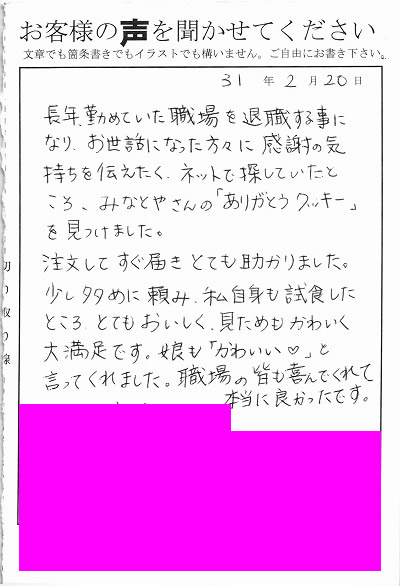 お客様の声を聞かせてください
文章でも箇条書きでもイラストでも構いません。ご自由にお書き下さい。
31年2月20日
長年、勤めていた職場を退職する事に
なり、お世話になった方々に感謝の気
持ちを伝えたく、ネットで探していたと
ころ、みなとやさんの「ありがとうクッキー」
を見つけました。
注文してすぐ届きとても助かりました。
少し多めに頼み、私自身も試食した
ところ、とてもおいしく、見ためもかわいく
大満足です。娘も「かわいい♡」と
言ってくれました。職場の皆も喜んでくれて
本当に良かったです。
切り取り線